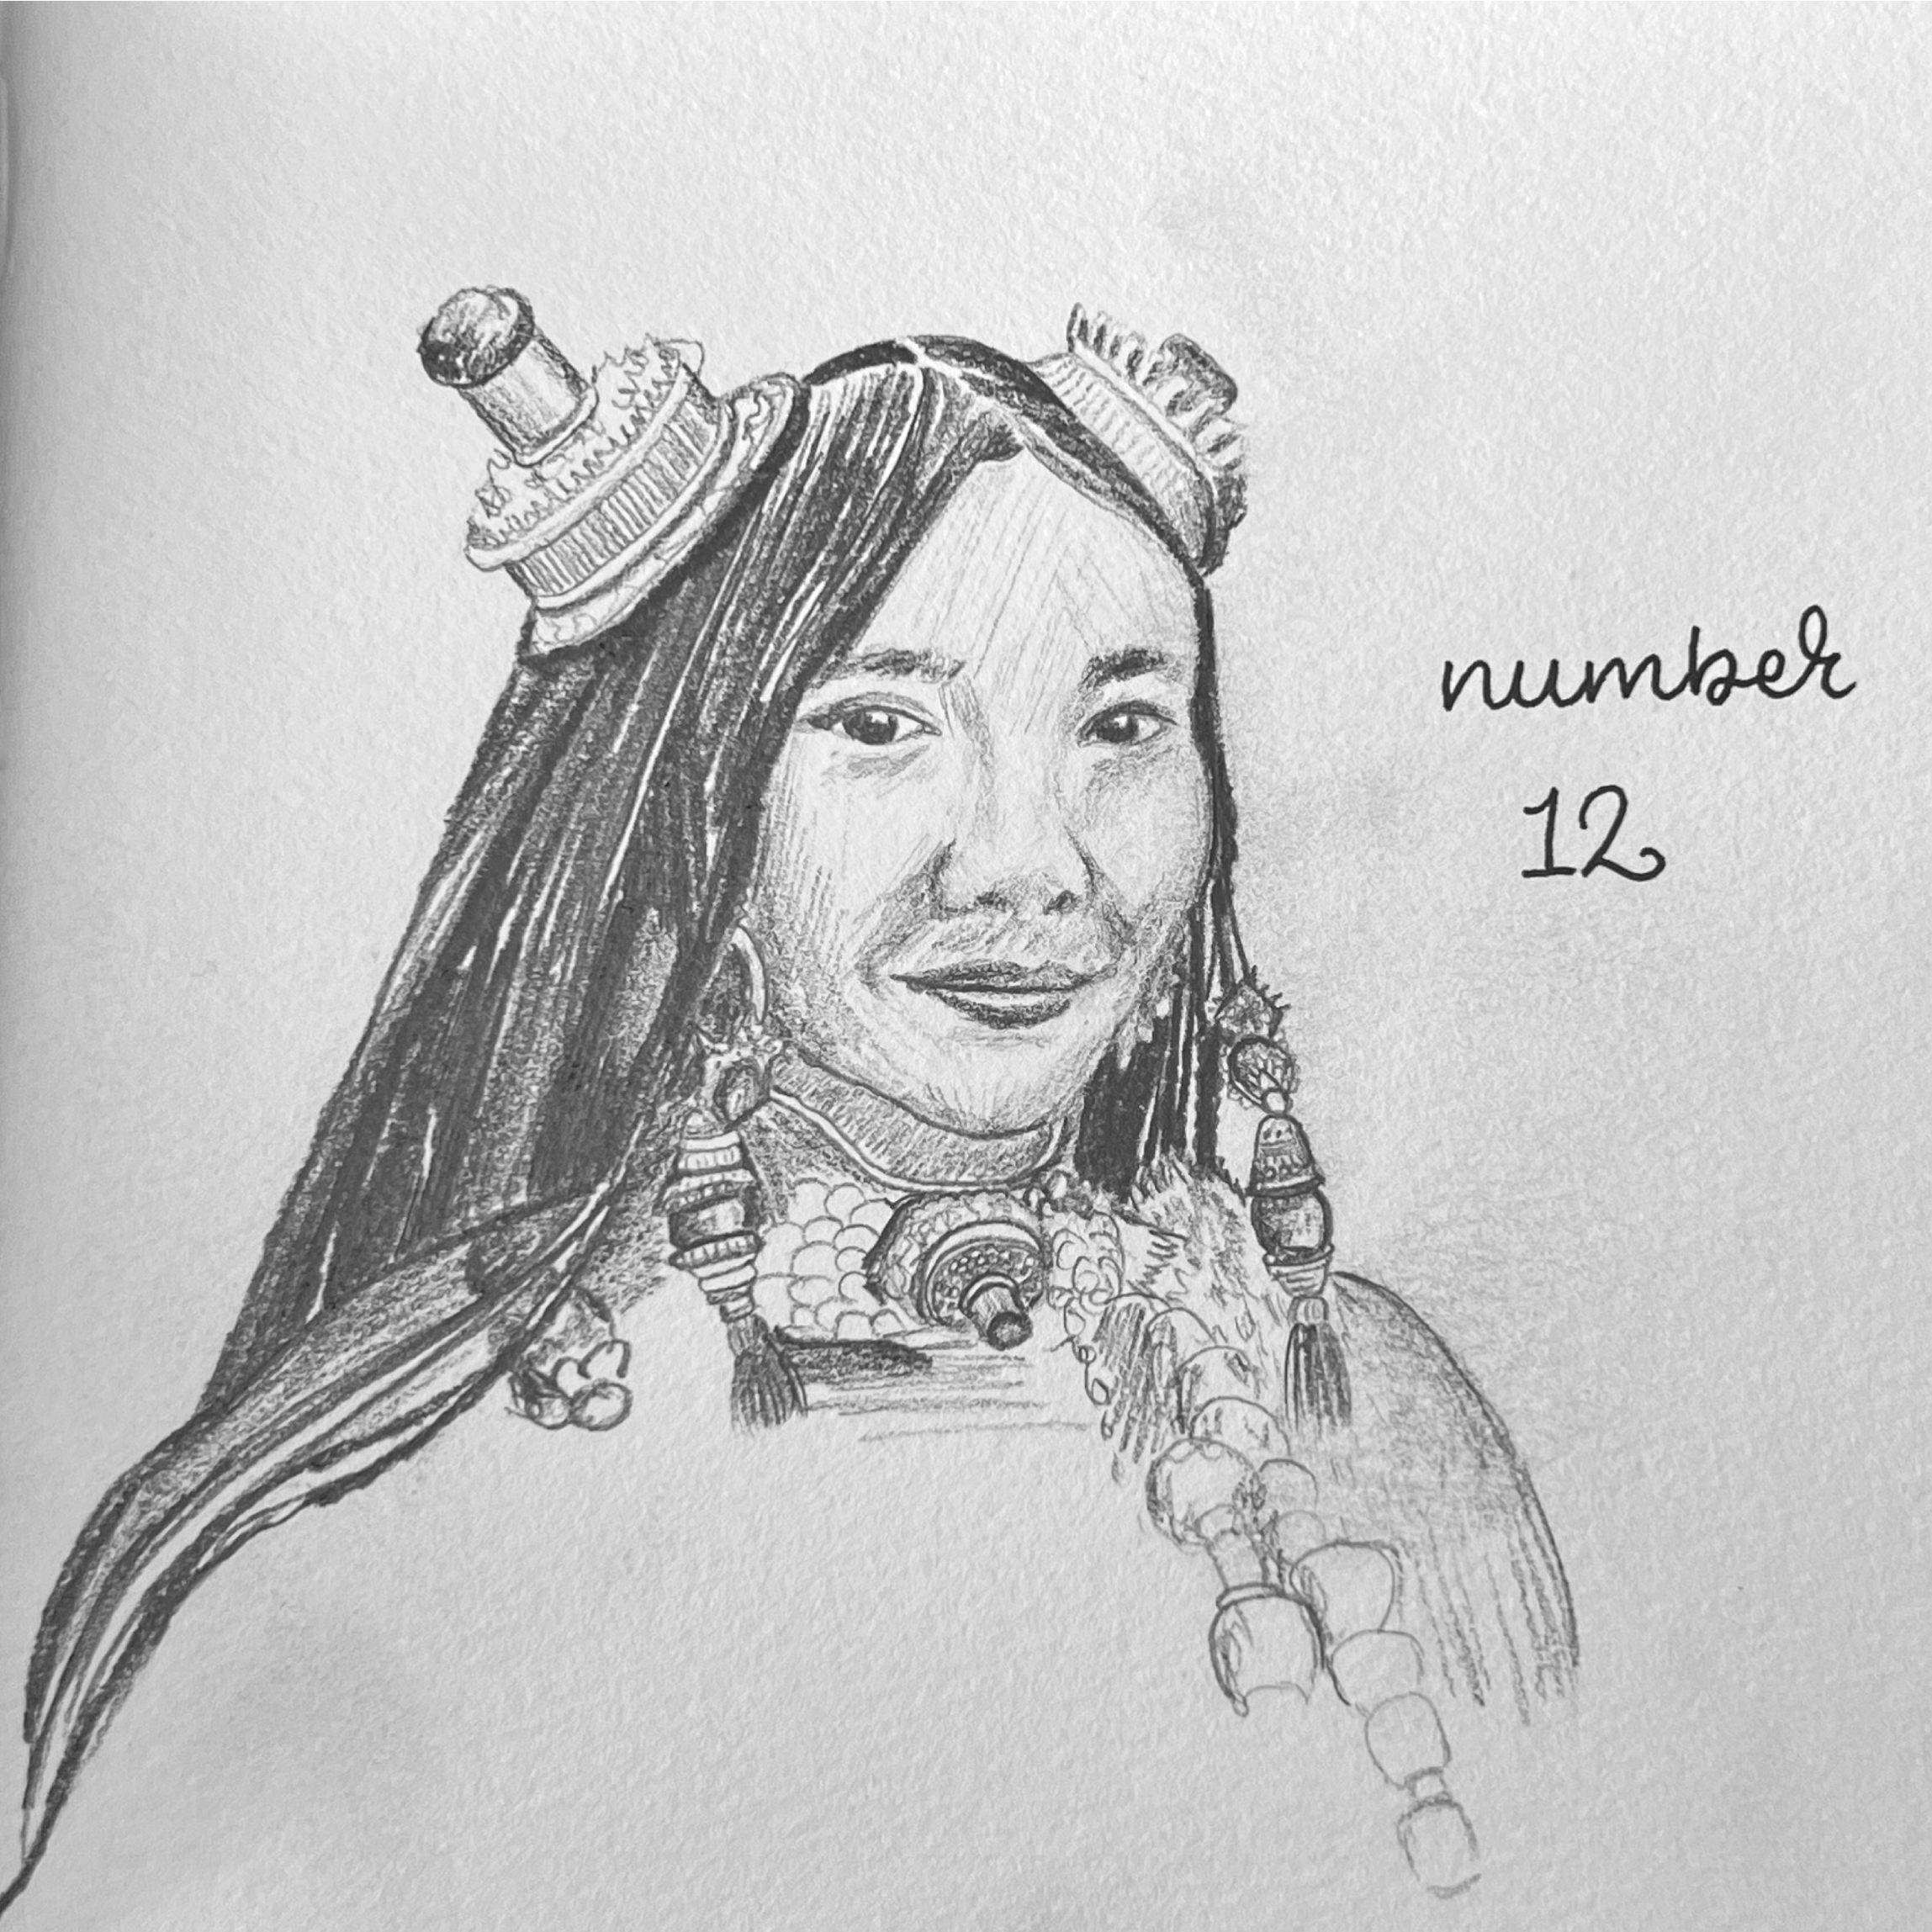 number
12